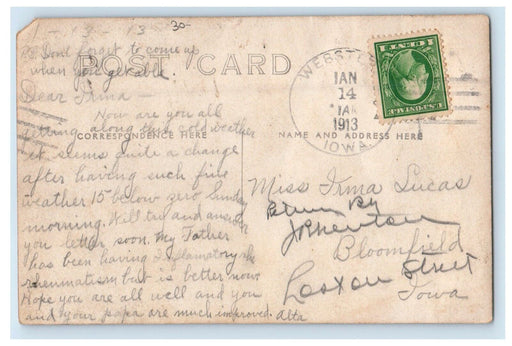 1-13-13 30-
P.S. Dont forget to come up
when you get able.
POST CARD
Dear Irma -
Now are you all
getting along this cold weather
CORRESPONDENCE HERE
it seems quite a change
after having such fine
weather 15 below zero Sunday
morning. Will try and answer
you letter soon. My Father
has been having Inflamatory
rheumatism but is better now
Hope you are all well and you
and your papa are much improved. Alta
WEBSTER
JAN
14
1913
IOWA.
U.S. POSTAGE
1 CENT 1
NAME AND ADDRESS HERE
Miss Irma Lucas
Bloomfield
Street
Iowa